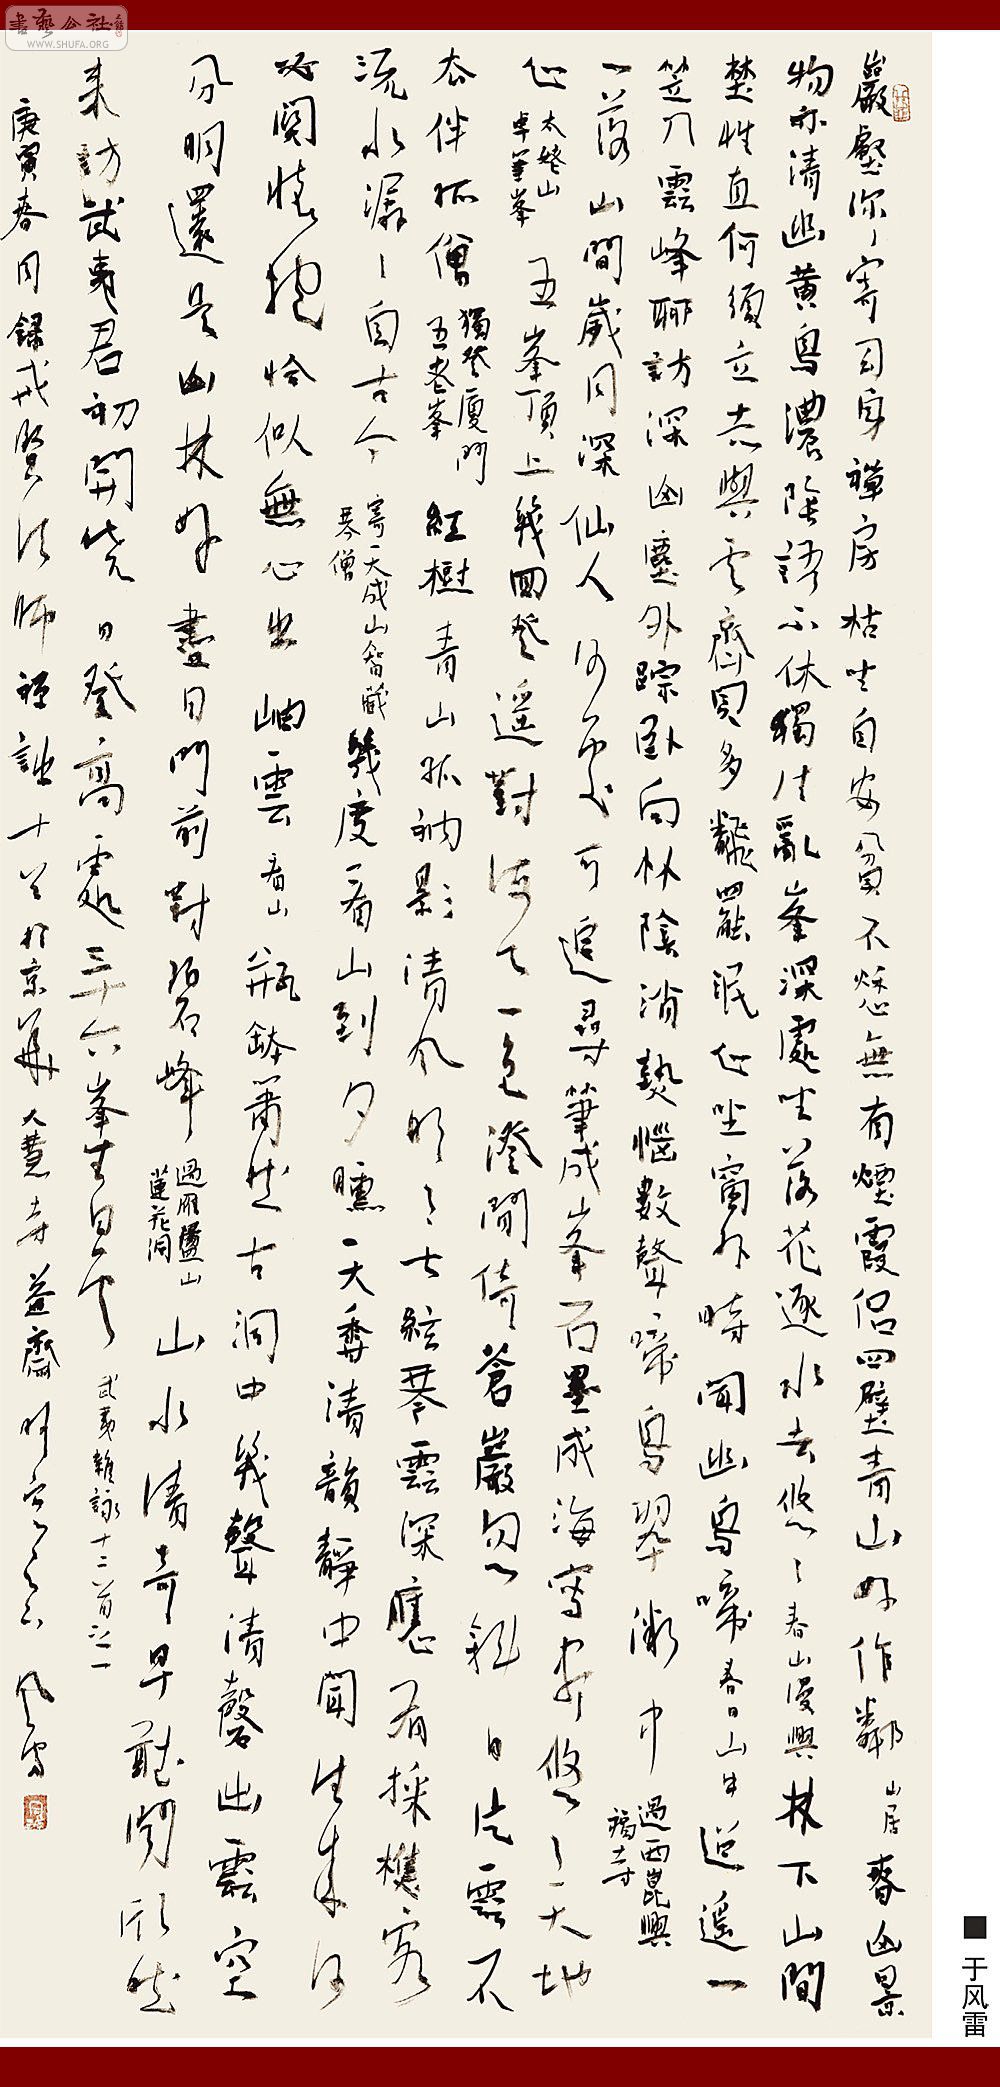 書藝公社
WWW.SHUFA.ORG
巖壑深深寄自身禪房枯坐自安貧不愁無有煙霞侶四壁青山好作鄰 山居 春山景
物亦清幽黄鳥濃陰語不休獨住亂峯深處坐落花逐水去悠悠 春山漫興 林下山間
性直何須立志與雲齊貝多翻罷泯心坐窗外時聞幽鳥啼 春日山中 逍遥一
笠入雲峰聊訪深幽塵外踪卧向林陰消熱惱數聲啼鳥翠微中 過西崑興福寺
一落山間歲月深仙人何處可追尋筆成峯石墨成海寫出悠悠天地
心 太姥山卓筆峯 五峯頂上幾回登遥對海天一色澄閒倚蒼巖斜日片雲不
去伴孤僧 獨登廈門五老峯 紅樹青山孤衲影清風明月七絃琴雲深應有採樵客
流水潺潺自古今 寄天成山智嚴琴僧 幾度看山到夕曛天香清韻靜中聞生来何
必関懷抱恰似無心出岫雲 看山 瓶鉢蕭然古洞中幾聲清磬出雲空
分明還是山林好盡日門前對碧峰 過雁蕩山蓮花洞 山水清奇早聽聞欣然
来訪武夷君初開曉日登高處三十六峯生白雲 武夷雜詠十二首之一
庚寅春月錄戒賢法師禪詩十首於京華大慧寺益齋 風雷
于风雷